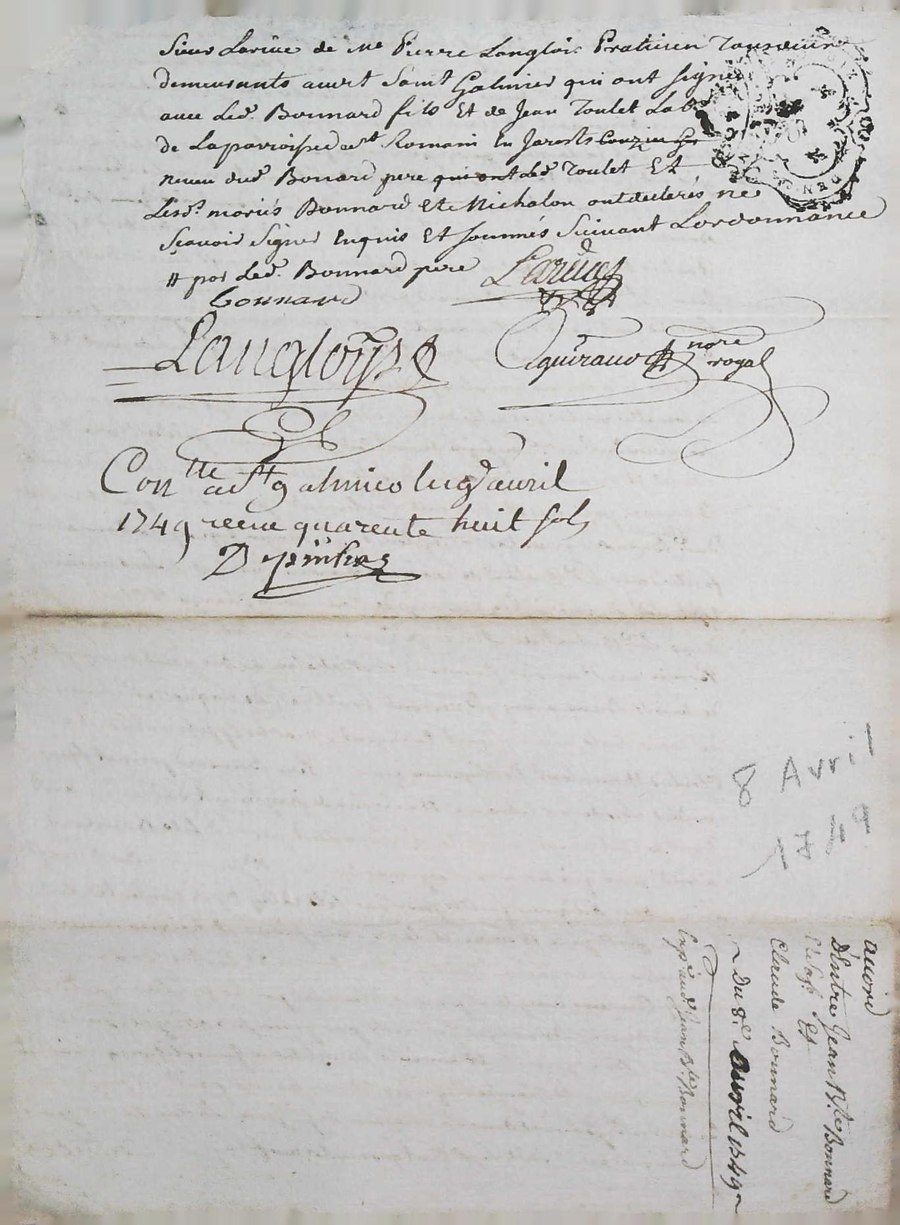 Sieur Larüe de Me Pierre Langlois Praticien Tous deux
demeurants audt Saint Galmier qui ont signé
avec Led. Bonnard fils Et de Jean Toulet Labr
de La parroisse de st Romain En Jarests Couzin Ger
neveu dud. Bonard pere qui ont Led. Toulet Et
Lesd. mariés Bonnard Et Michalon ont declarés ne
Sçavoir Signer Enquis Et sommés Suivant Lordonnance
# par Led. Bonnard pere
Larüe
bonnard
Langloys
guiraud nore
royal
Conlle a St galmier le 9d avril
1749 receu quarente huit sols
8 Avril
accord
D'Entre Jean Bte Bonnard
Et
Claude Bonnard
Du 8e Avril 1749
Expn aud. Jean Bte Bonnard